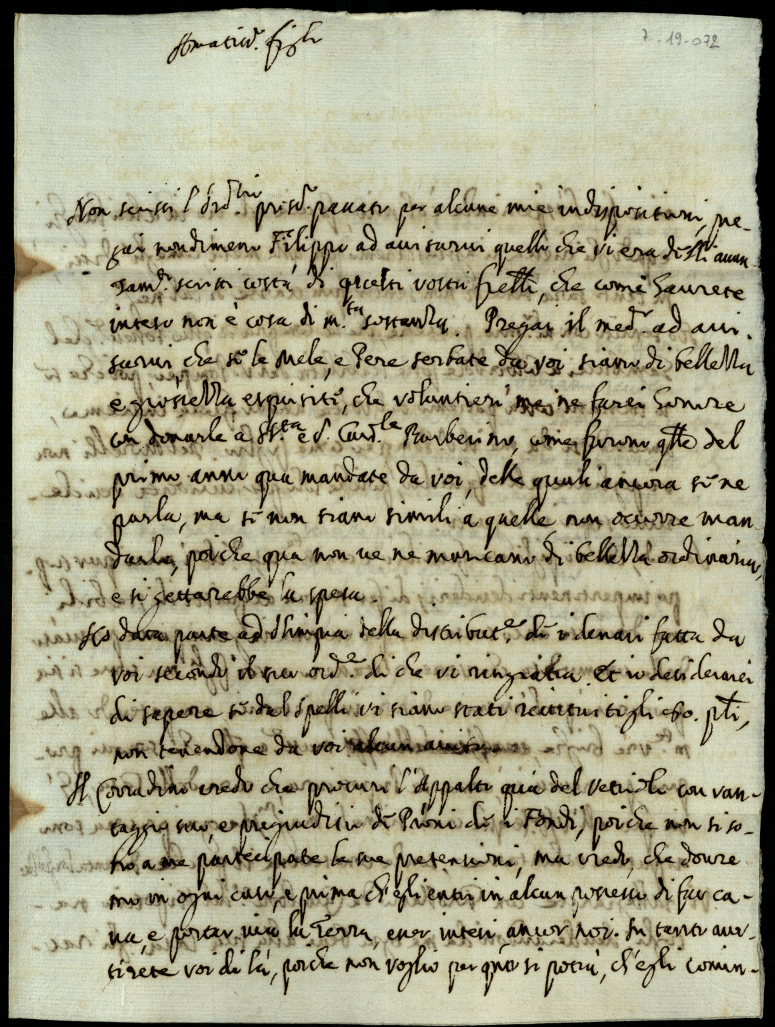 7-19-072
figli
Non scrissi l'Ord.rio pass.o per alcune mie indispositioni, pre-
gai nondimeno Filippo ad avisarvi quello che vi era di
scritti costà di questi vostri fratelli, che come haurete
inteso non è cosa di m.ta sostanza. Pregai il med.o ad avi-
sarvi che se le Mele, e Pere serbate da voi siano di bellezza
e grossezza esquisite, che volontieri me ne farei honore
con donarle a S. S.ta e S. Card.le Barberino, come furono q.lle del
primo anno qua mandate da voi, delle quali ancora se ne
parla, ma se non siano simili a quelle non occorre man-
darle, poiche qua non ve ne mancano di bellezza ordinaria,
e si gettarebbe la spesa.
Ho data parte ad Olimpia della distribut.e de i denari fatta da
voi secondo il suo ord.e di che vi ringratia. Et io desiderarei
di sapere se dal Spelli vi siano stati restituiti gli
non tenendone da voi alcun aviso.
Il Corradino credo che procuri l'Appalto qua del
taggio suo, e pregiuditio de Proni de i Fondi, poiche non si so-
no a me partecipate le sue pretensioni, ma credo, che doure
mo in ogni caso, e prima ch'egli entri in alcun possesso di far ca-
va, e portar via la Terra, esser intesi ancor noi. In tanto aver-
tirete voi di là, poiche non voglio per q.nto si potrà, ch'egli comin-